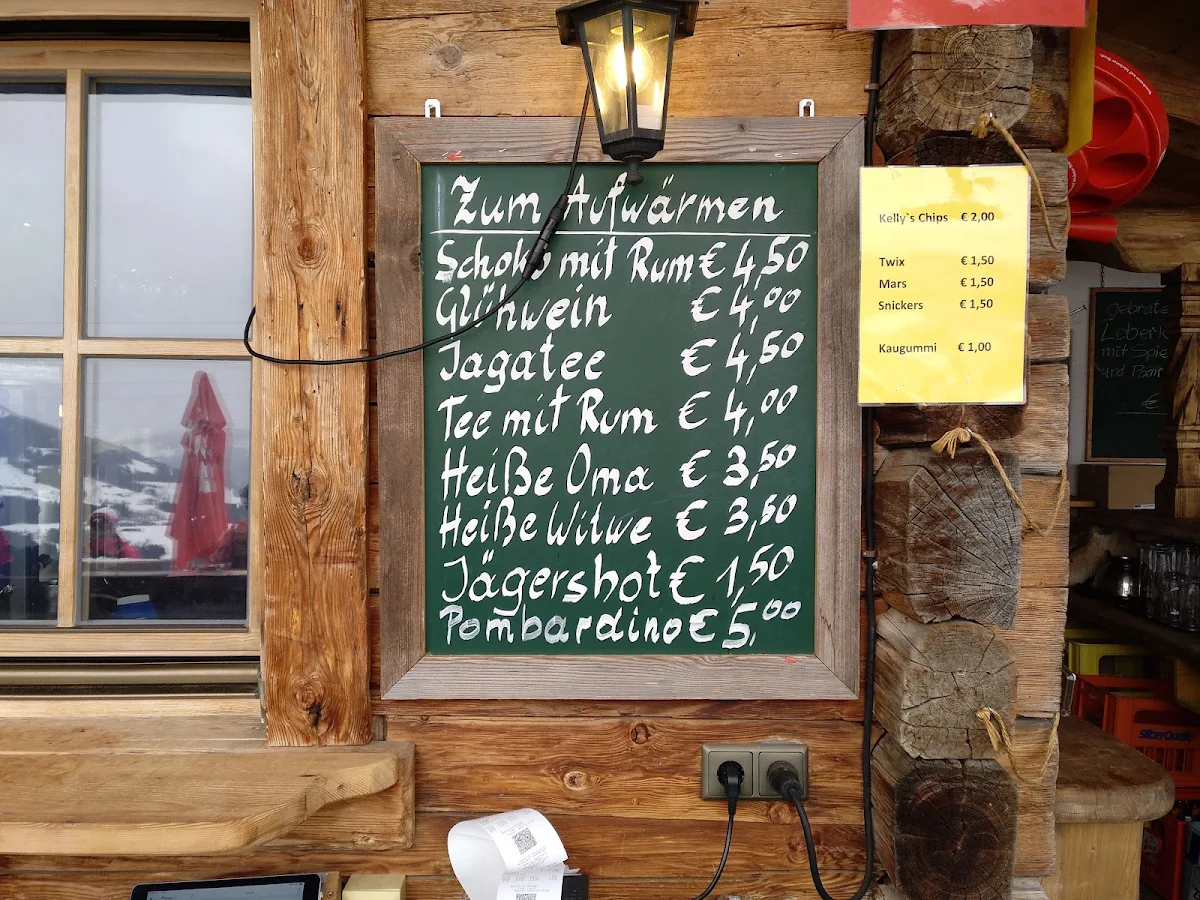 Zum Aufwärmen
Schoko mit Rum € 4,50
Glühwein € 4,00
Jagatee € 4,50
Tee mit Rum € 4,00
Heiße Oma € 3,50
Heiße Witwe € 3,50
Jägershot € 1,50
Pombardino € 5,00
Kelly`s Chips € 2,00
Twix € 1,50
Mars € 1,50
Snickers € 1,50
Kaugummi € 1,00
mit
und
€
SilberQuelle